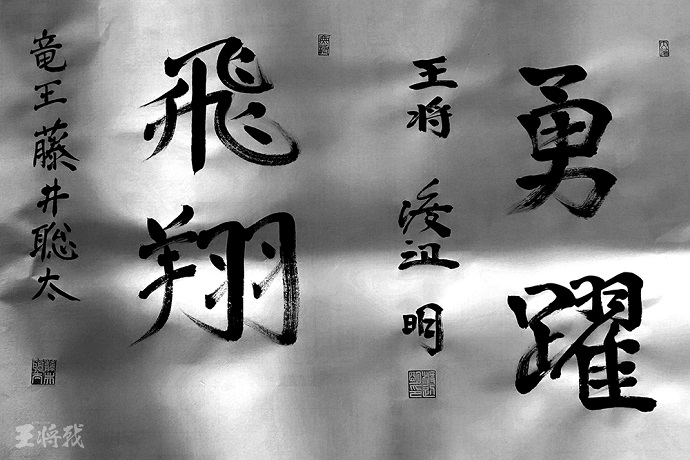 勇躍
王将 渡辺 明
飛翔
竜王 藤井聡太
王将戦